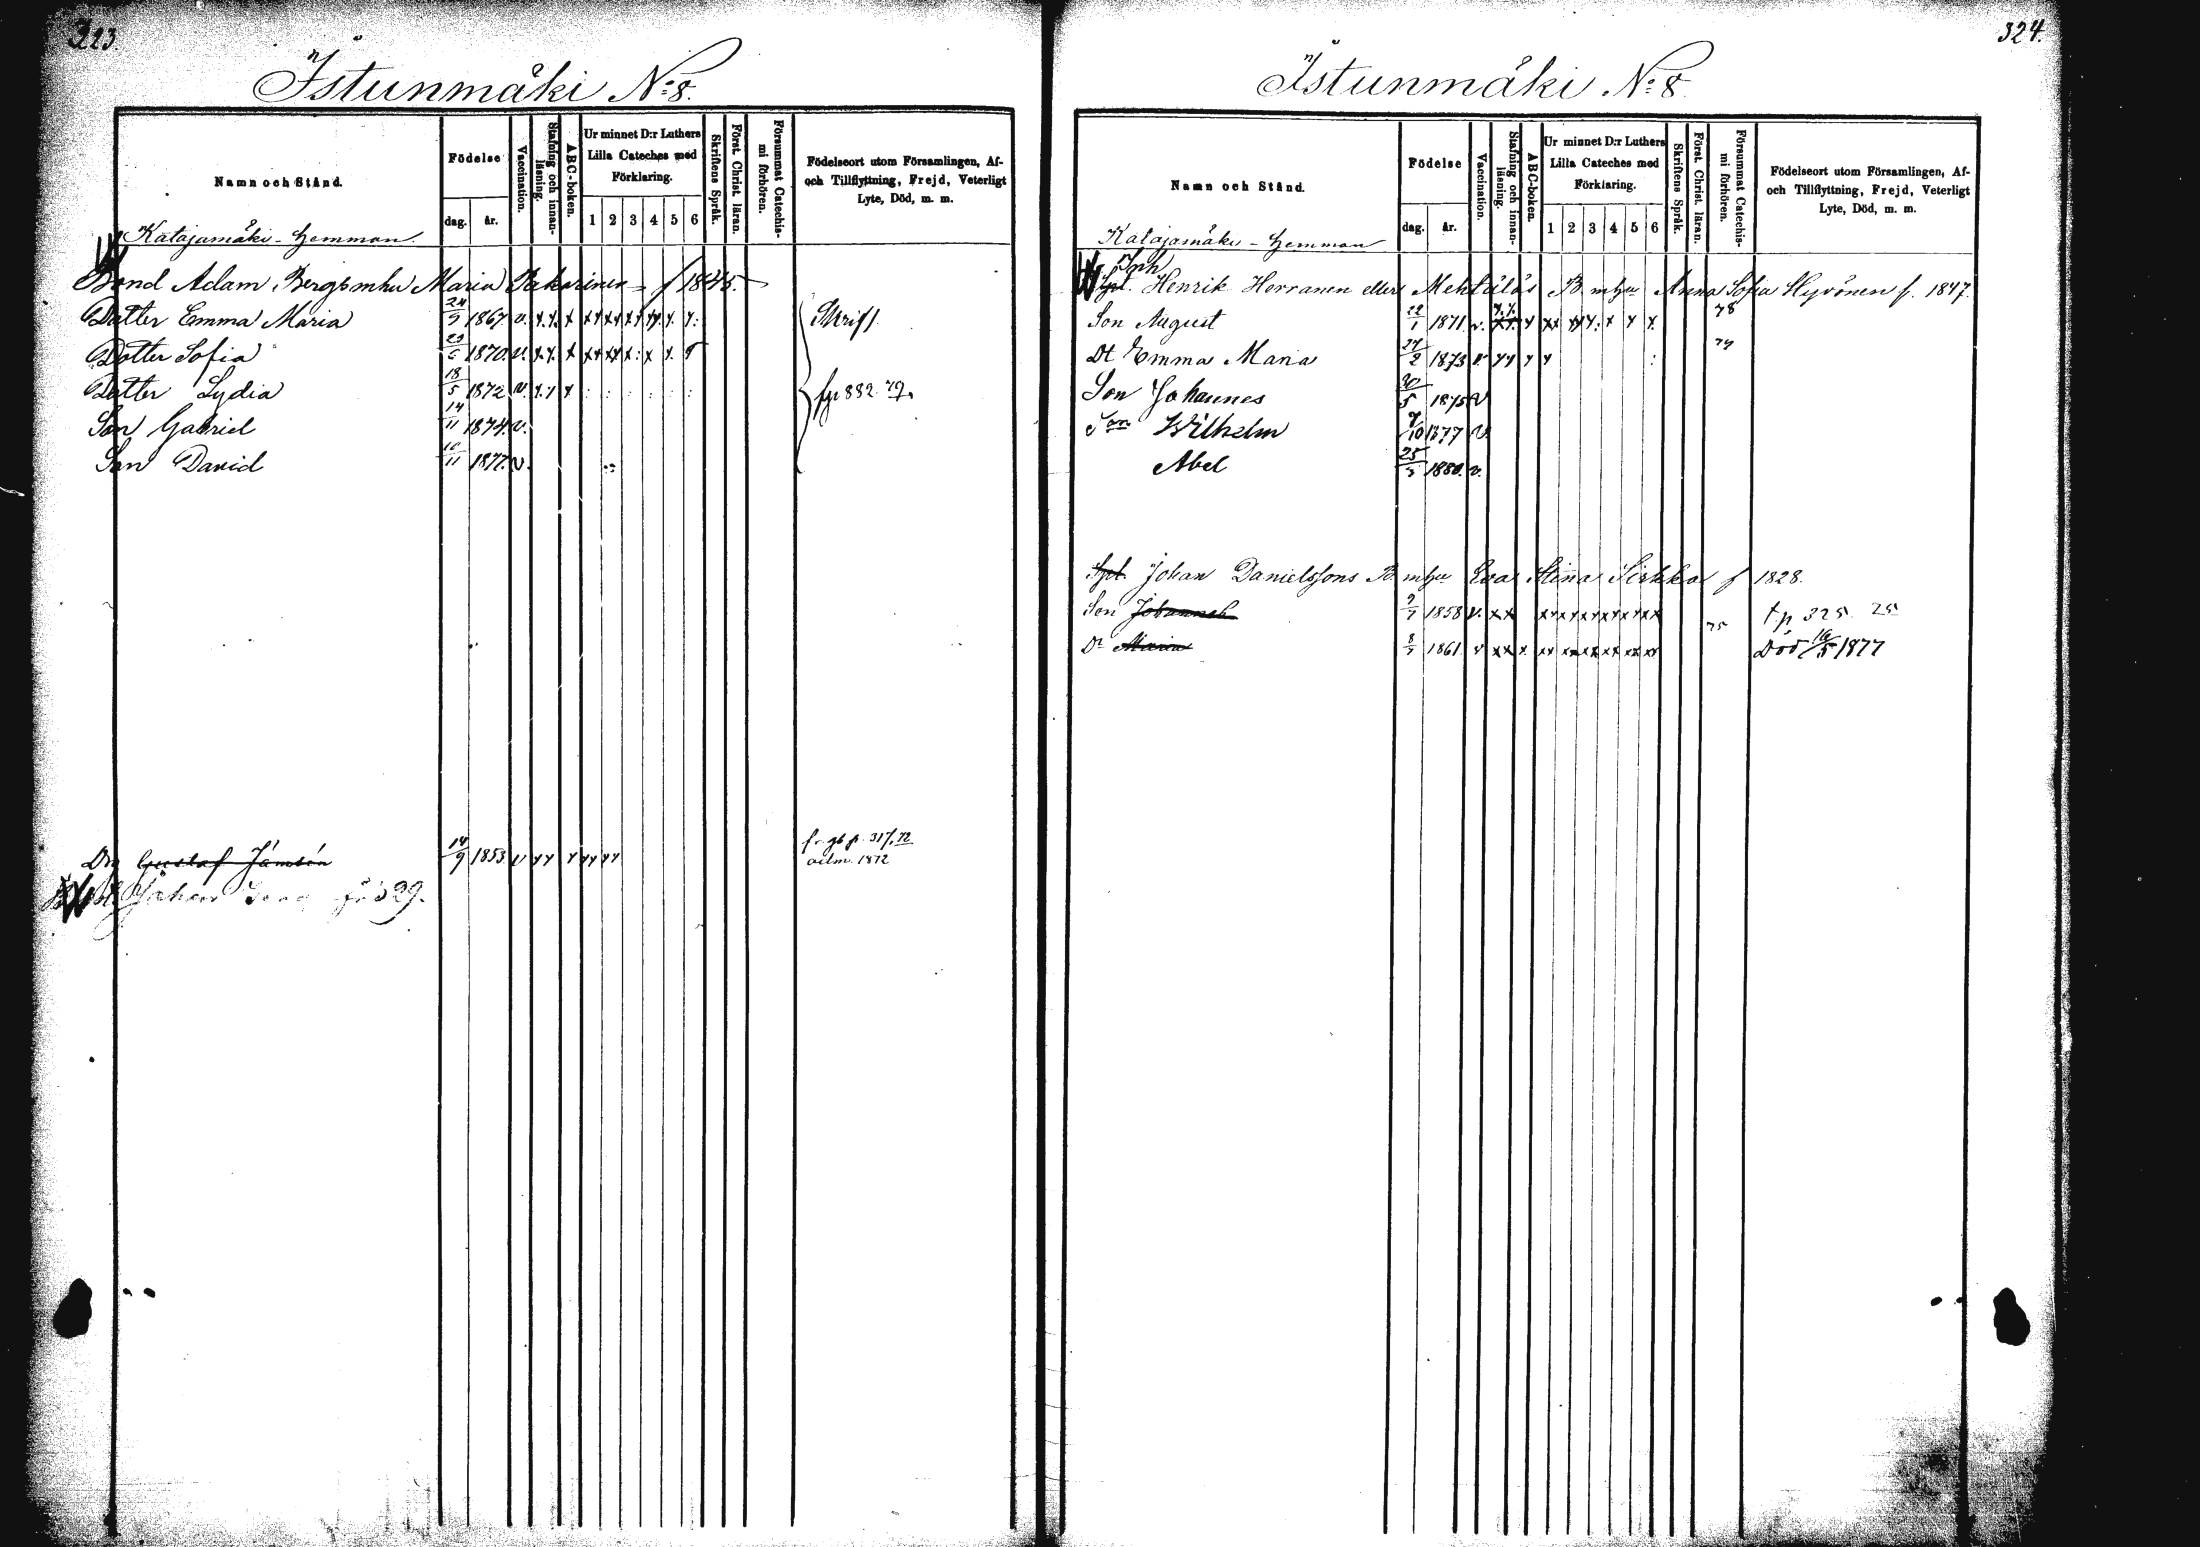 323.
Istunmäki No: 8.
Namn och Stånd.
Födelse
dag.
år.
Vaccination.
Stafning och innan-läsning.
ABC-boken.
Ur minnet D:r Luthers
Lilla Cateches med
Förklaring.
1 2 3 4 5 6
Skriftens Språk.
Först. Christ. läran.
Försummat Catechis-mi förhören.
Födelseort utom Församlingen, Af-
och Tillflyttning, Frejd, Veterligt
Lyte, Död, m. m.
Katajamäki - Hemman.
Bond Adam Bergs mhu Maria Pakarinen f 1845.
Dotter Emma Maria 24/9 1867 v. x.x. x xx xx Skrift
Dotter Sofia 1870 v. x.x. x xx xx x: x x
Dotter Lydia 18/5 1872 v. fp 882 79.
Son Gabriel 14/11 1874 v.
Son David 10/11 1877 v.
Drg Gustaf Jämsén 14/9 1853 v xx x xx xx fr. gb p. 317, 72
adm. 1872
Johan 329.
324.
Istunmäki No: 8
Namn och Stånd.
Födelse
dag.
år.
Vaccination.
Stafning och innan-läsning.
ABC-boken.
Ur minnet D:r Luthers
Lilla Cateches med
Förklaring.
1 2 3 4 5 6
Skriftens Språk.
Först. Christ. läran.
Försummat Catechis-mi förhören.
Födelseort utom Församlingen, Af-
och Tillflyttning, Frejd, Veterligt
Lyte, Död, m. m.
Katajamäki - Hemman
Inh
Spl. Henrik Herranen ellers Mehtälös B mhu Anna Sofia Hyvönen f. 1847.
Son August 22/1 1871 v. 78
Dt Emma Maria 27/2 1873 v xx x x 74
Son Johannes 30/5 1875 v
Son Wilhelm 9/10 1877 v
Abel 1880. v.
Spl. Johan Danielssons B mhu Eva Stina Sirkka f 1828.
Son Johannes 1858 v. xx xx xx xx xx xx xx 75 t.p 325 25
Dr Maria 1861 v xx x xx xx xx xx xx xx Död 16/5 1877